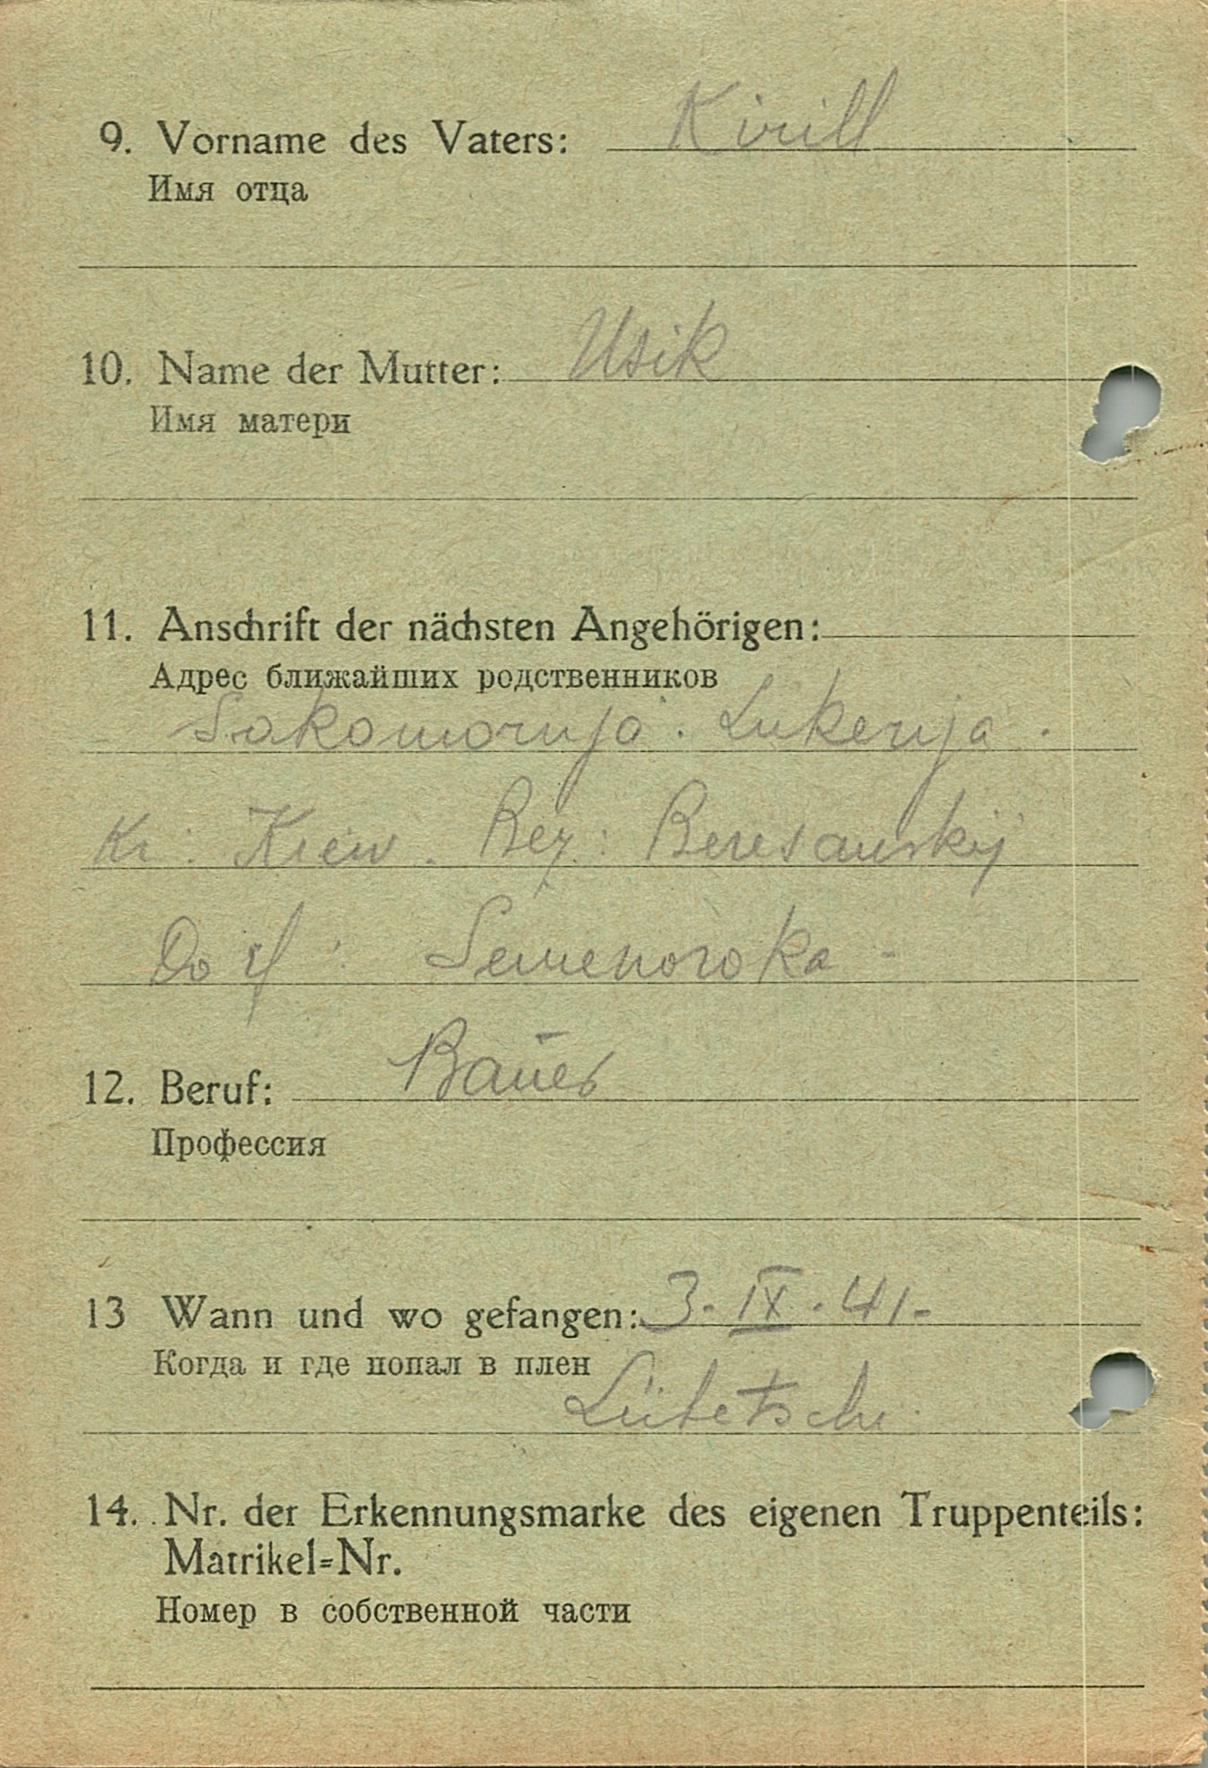 9. Vorname des Vaters: Kirill
Имя отца
10. Name der Mutter: Usik
Имя матери
11. Anschrift der nächsten Angehörigen:
Адрес ближайших родственников
Lukerija.
Kr: Kiew. Bez: Beresanskij
Dorf: Semenowka -
12. Beruf: Bauer
Профессия
13 Wann und wo gefangen: 3. IX. 41.
Когда и где попал в плен
14. Nr. der Erkennungsmarke des eigenen Truppenteils:
Matrikel=Nr.
Номер в собственной части